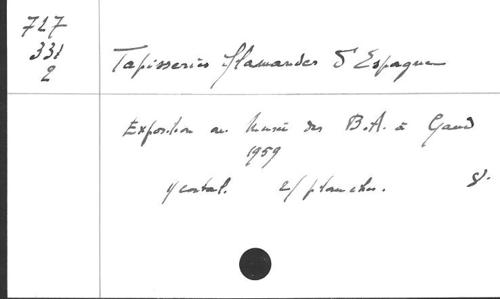 727
331
2
Tapisseries flamandes d'Espagne
Exposition au Musée des B.A. à Gand
1959
catal. 2/ planches. 8°.